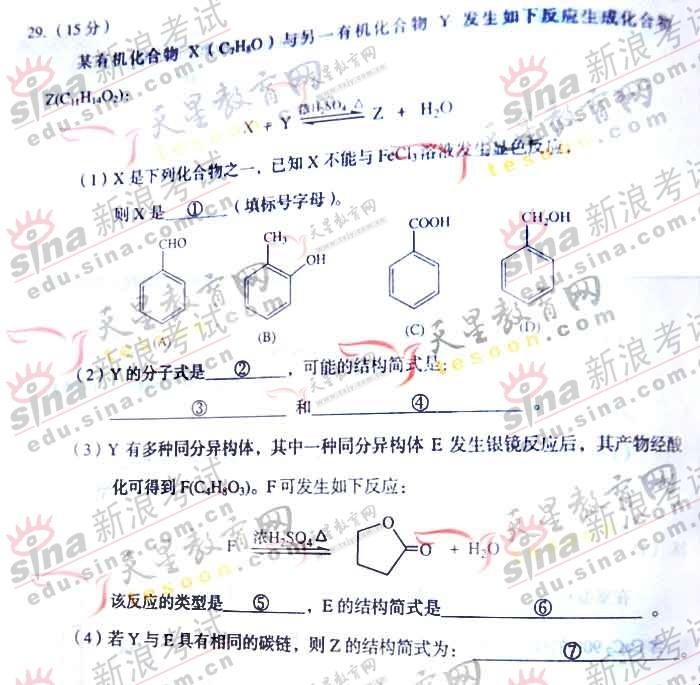 29.（15分）
某有机化合物 X（C₇H₈O）与另一有机化合物 Y 发生如下反应生成化合物
Z(C₁₁H₁₄O₂):
X + Y 浓H₂SO₄ △ Z + H₂O
（1）X 是下列化合物之一，已知 X 不能与 FeCl₃ 溶液发生显色反应，
则 X 是 ① （填标号字母）。
CHO CH₃ OH COOH CH₂OH
(A) (B) (C) (D)
（2）Y 的分子式是 ② ，可能的结构简式是：
③ 和 ④ 。
（3）Y 有多种同分异构体，其中一种同分异构体 E 发生银镜反应后，其产物经酸
化可得到 F(C₄H₈O₃)。F 可发生如下反应：
F 浓H₂SO₄ △ O O + H₂O
该反应的类型是 ⑤ ，E 的结构简式是 ⑥ 。
（4）若 Y 与 E 具有相同的碳链，则 Z 的结构简式为： ⑦ 。
sina 新浪考试
edu.sina.com.cn
天星教育网
tesoon.com